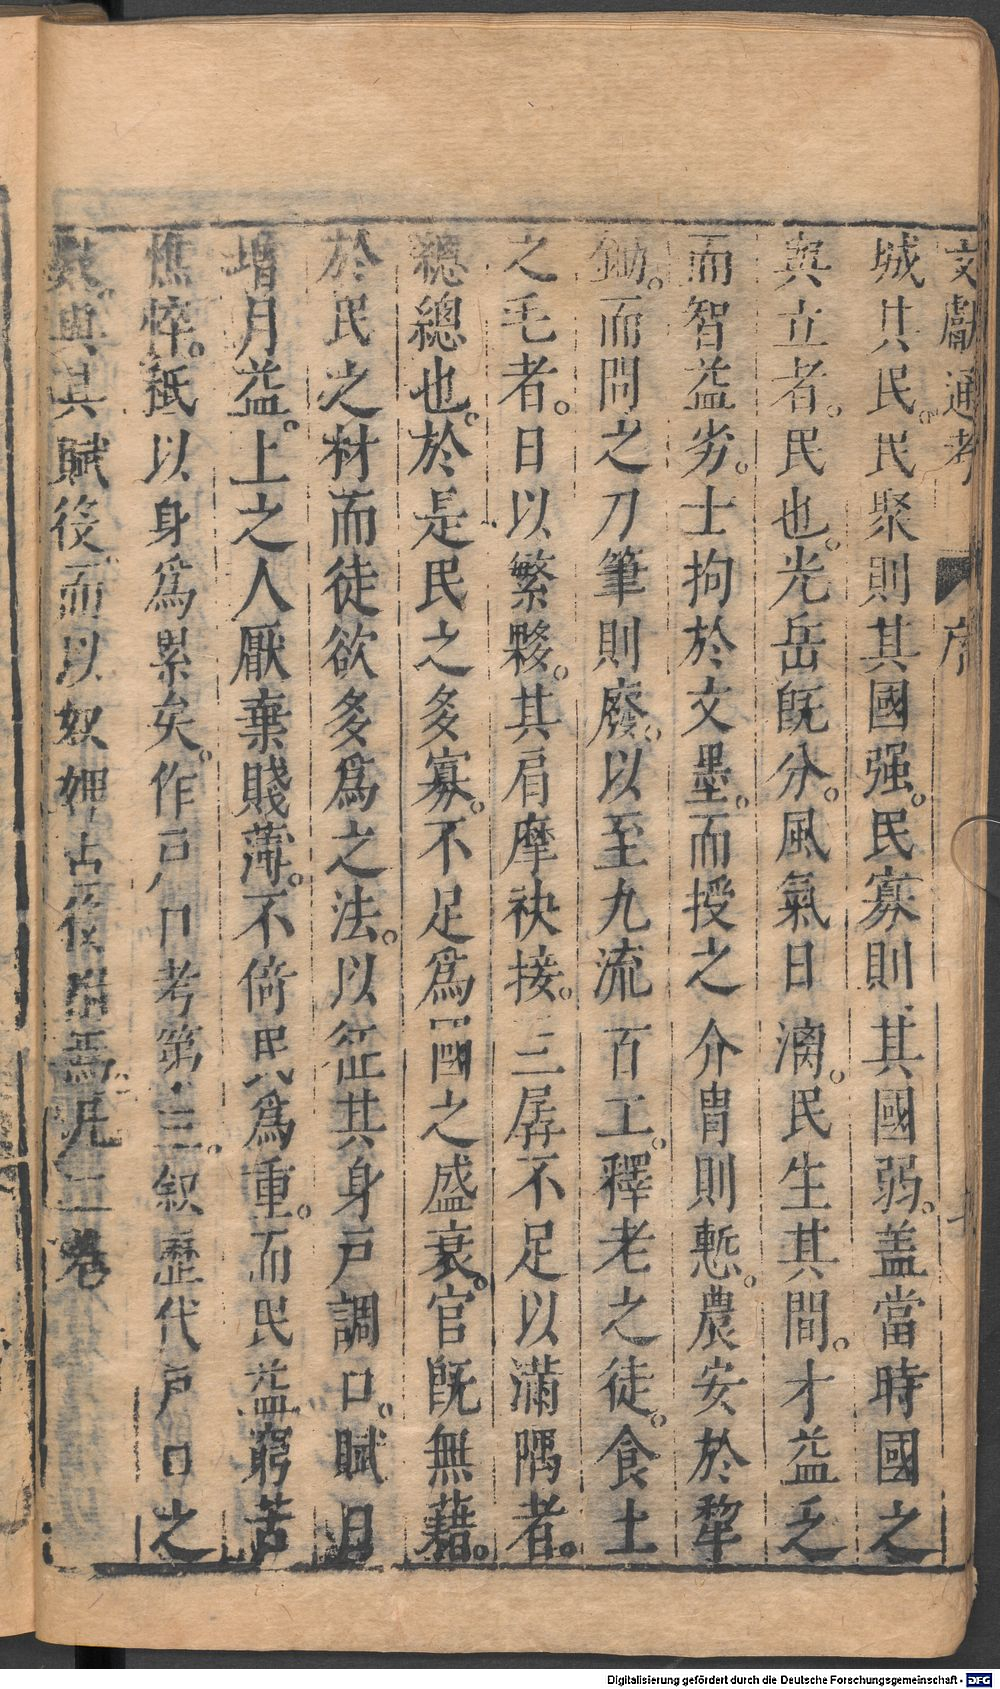 文獻通考 序
城其民。民聚則其國强。民寡則其國弱。盖當時國之
與立者。民也。光岳旣分。風氣日漓。民生其間。才益乏
而智益劣。士拘於文墨。而授之介冑則慙。農安於犂
鋤。而問之刀筆則廢。以至九流百工。釋老之徒。食土
之毛者。日以繁夥。其肩摩袂接。三孱不足以滿隅者。
總總也。於是民之多寡。不足爲國之盛衰。官旣無藉。
於民之材而徒欲多爲之法。以征其身戶調口。賦日
增月益。上之人厭棄賤薄。不倚民爲重。而民益窮苦
憔悴。祇以身爲累矣。作戶口考第三。叙歷代戶口之
數與其賦役。而以奴婢占役附焉。凡二卷
Digitalisierung gefördert durch die Deutsche Forschungsgemeinschaft - DFG